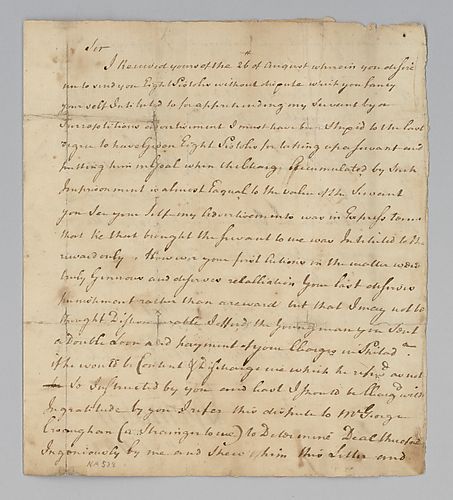 Sir
I Received yours of the 26th of August wherein you desire
me to send you Eight Pistoles without dispute which you fancy
your self Intituled to for apprehending my Servant by a
Surroptitious advertisement I must have been Stupid to the last
degree to have Given Eight Pistoles for taking up a Servant and
putting him in Goal when the Charge Accumulated by Such
Imprisonment is almost Equal to the value of the Servant
you See your Self my Advertisements was in Express terms
that he that brought the Servant to me was Intituled to the
reward only. However your first Actions in the matter were
truly Generous and deserves retalliation Your last deserves
punishment rather than a reward but that I may not be
thought Dishonorable I offerd the Young man you Sent
a Double Loon and payment of your Charges in Philada
if he would be Content & Discharge me which he refusd as not
So Instructed by you and least I should be Chargd with
Ingratitude by you I refer this dispute to Mr George
Croaughan (a Strainger to me) to Determine Deal therefore
Ingeniously by me and Shew him this Letter and
NA 503